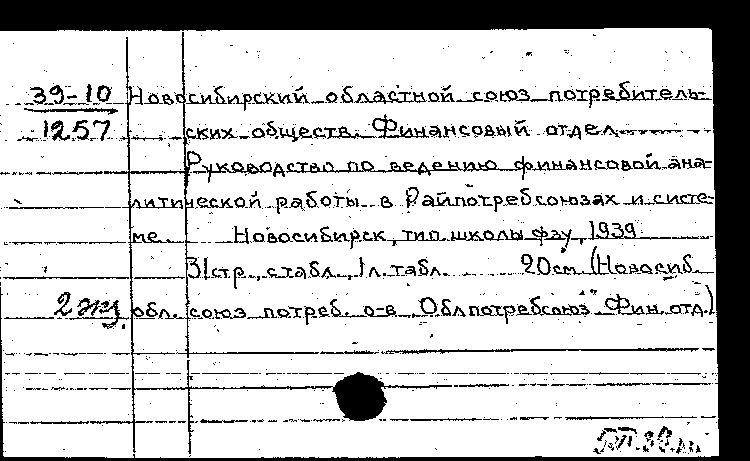 39-10 Новосибирский областной союз потребитель-
1257 ских обществ. Финансовый отдел.
Руководство по ведению финансовой ана-
литической работы в Райпотребсоюзах и систе-
ме. Новосибирск, тип. школы фзу, 1939
31 стр., с табл., 1 л. табл. 20 см. (Новосиб.
2 экз. обл. союз потреб. о-в "Облпотребсоюз" Фин. отд.)